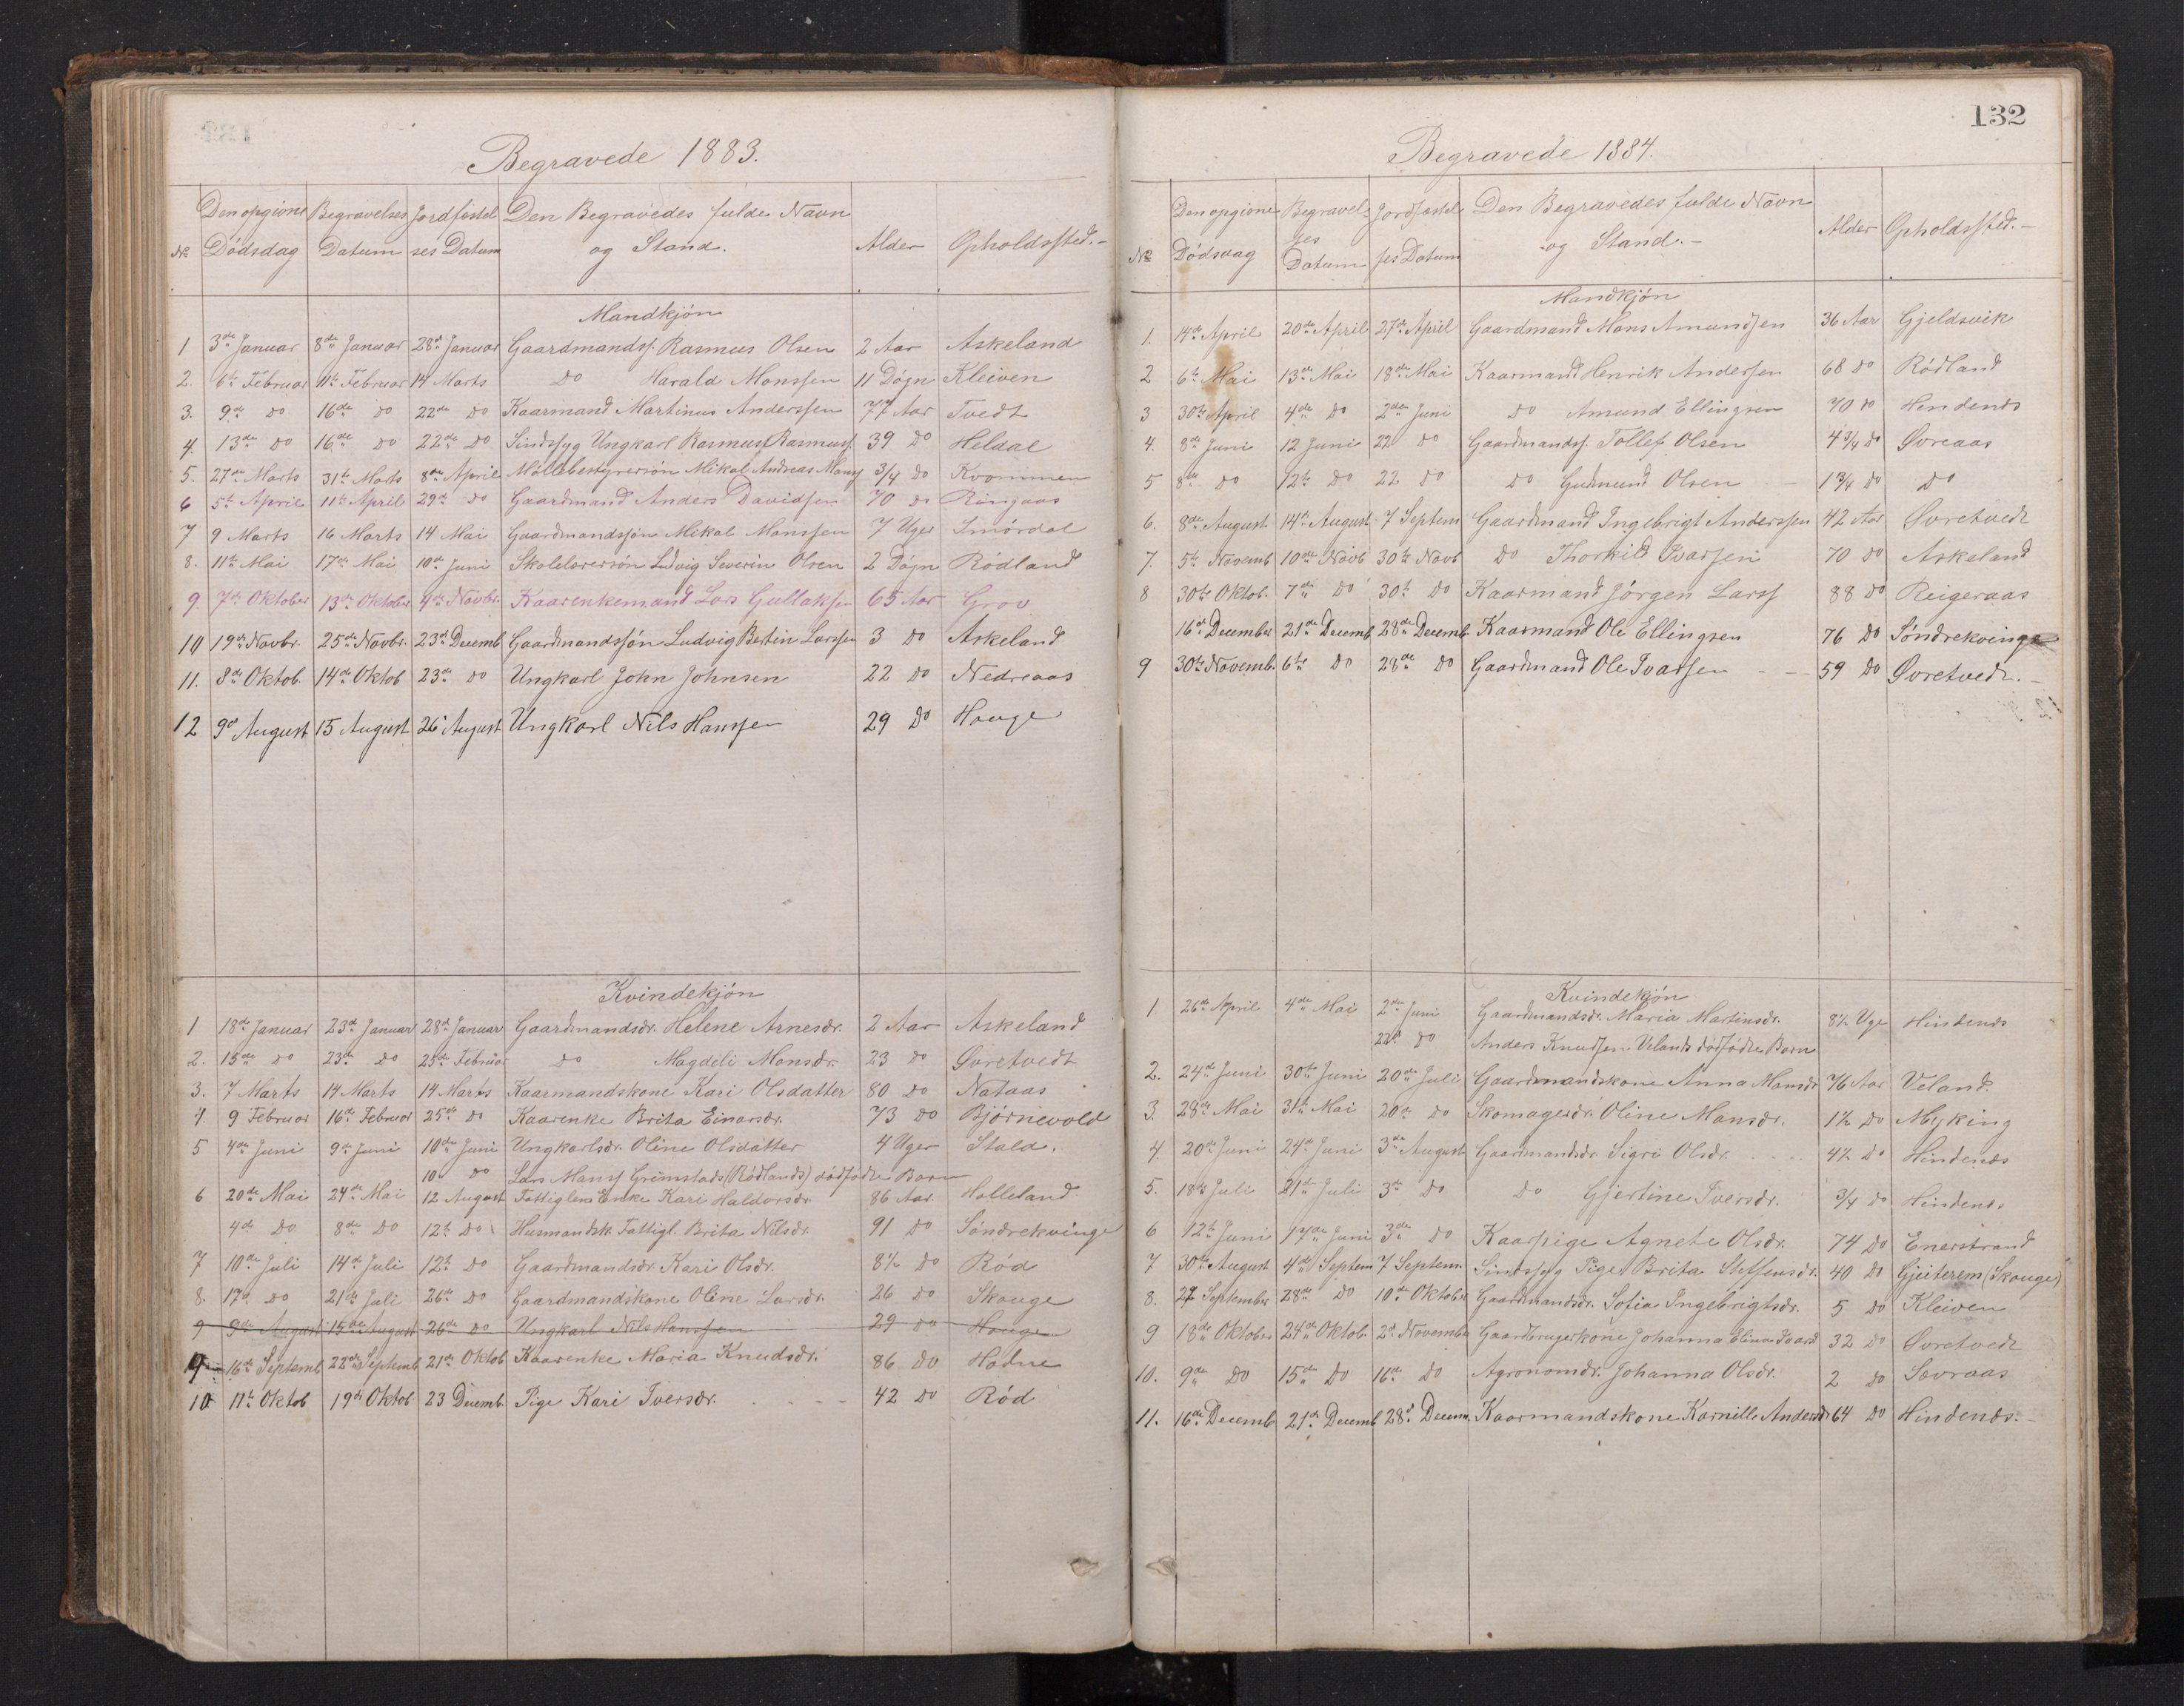 Begravede 1883.
No Den opgivne Dödsdag Begravelses Datum Jordfæstelses Datum Den Begravedes fulde Navn og Stand. Alder Opholdssted.-
Mandkjön
1 3de Januar 8de Januar 28de Januar Gaardmandss. Rasmus Olsen 2 Aar Askeland
2. 6te Februar 11te Februar 14 Marts Do Harald Monssen 11 Dögn Kleiven
3. 9de do 16de do 22de do Kaarmand Martinus Anderssen 77 Aar Tvedt
4. 13de do 16de do 22de do Sindssyg Ungkarl Rasmus Rasmuss. 39 do Heldal
5. 27de Marts 31te Marts 8de April Möllebestyrersön Mikal Andreas Monss 3/4 do Kvammen
6 5te April 11te April 29de do Gaardmand Anders Davidsen 70 do Ringaas
7 9 Marts 16 Marts 14 Mai Gaardmandssön Mikal Monssen 7 Uger Smördal
8. 11te Mai 17de Mai 10de Juni Skolelærersön Ludvig Severin Olsen 2 Dögn Rödland
9. 7de Oktober 13de Oktober 4de Novbr. Kaarenkemand Lars Gullaksen 65 Aar Grov
10 19de Novbr. 25de Novbr. 23de Decemb Gaardmandssön Ludvig Bertin Larssen 3 Do Askeland
11. 8de Oktob 14de Oktob 23de do Ungkarl John Johnsen 22 do Nedreaas
12 9de August 15 August 26 August Ungkarl Nils Hanssen 29 do Houge
Kvindekjön
1 18de Januar 23de Januar 28de Januar Gaardmandsdr. Helene Arnesdr. 2 Aar Askeland
2. 15de do 23de do 25de Februar do Magdeli Monsdr. 23 do Övretvedt
3. 7 Marts 14 Marts 14 Marts Kaarmandskone Kari Olsdatter 80 do Nataas
4 9 Februar 16de Februar 25de do Kaarenke Brita Einarsdr. 73 do Bjørnevold
5 4de Juni 9de Juni 10de Juni Ungkarlsdr. Oline Olsdatter 4 Uger Stald.
10 do Lars Monss Grimstads (Rödlands) dödfödte Barn
6 20de Mai 24de Mai 12 August Fattiglem Enke Kari Haldorsdr. 86 Aar. Helleland
4de do 8de do 12te do Husmandsk. Fattigl. Brita Nilsdr. 91 do Söndrekvinge
7 10de Juli 14de Juli 12te do Gaardmandsdr. Kari Olsdr. 8½ do Röd
8. 17de do 21de Juli 26de do Gaardmandskone Oline Larsdr. 26 do Skouge
9 9de August 15de August 26de do Ungkarl Nils Hanssen 29 do Houge
9 16de Septemb. 22de Septemb. 21de Oktob Kaarenke Maria Knudsdr. 86 do Hodne
10 11te Oktob 19de Oktob 23 Decemb. Pige Kari Iversdr. 42 do Röd
132
Begravede 1884.
No Den opgivne Dödsdag Begravelses Datum Jordfæstelses Datum Den Begravedes fulde Navn og Stand.- Alder Opholdssted.-
Mandkjön
1. 14de April 20de April 27de April Gaardmand Mons Amundsen 36 Aar Gjeldsvik
2 6te Mai 13de Mai 18de Mai Kaarmand Henrik Andersen 68 do Rödland
3 30te April 4de do 2den Juni do Amund Ellingsen 70 do Hendenes
4. 8de Juni 12 Juni 22 do Gaardmandss. Tollef Olsen 4 3/4 do Övreaas
5 8de do 12te do 22 do do Gudmund Olsen - 1 3/4 do do
6. 8de August 14de August 7 Septem Gaardmand Ingebrigt Anderssen 42 Aar Övretvedt
7. 5te Novemb 10de Novb 30te Novb do Thorkild Ivarsen 70 do Askeland
8 30te Oktob. 7de do 30te do Kaarmand Jörgen Larss 88 do Reigeraas
16de December 21de Decemb 28de Decemb Kaarmand Ole Ellingsen 76 do Söndrekvinge
9 30te Novemb. 6te do 28de do Gaardmand Ole Ivarsen - - 59 do Övretvedt.-
Kvindekjön
1. 26de April 4de Mai 2den Juni Gaardmandsdr. Maria Martinsdr. 8½ Uge Hindenes
22de do Anders Knudsen Velands dödfödte Barn
2. 24de Juni 30te Juni 20de Juli Gaardmandskone Anna Monsdr 76 Aar Veland.
3. 28de Mai 31te Mai 20de do Skomagerdr. Oline Monsdr. 1½ do Myking
4. 20de Juni 24de Juni 3de August Gaardmandsdr Sigri Olsdr. 4½ do Hindenes
5. 18de Juli 21de Juli 3de do do Gjertine Iversdr. 3/4 do Hindenes
6 12te Juni 17de Juni 3de do Kaarpige Agnete Olsdr. 74 do Enerstrand
7 30te August 4de Septem 7 Septem. Sindssyg Pige Brita Steffensdr. 40 do Gjeiterem (Skouge)
8. 22 September 28de do 10de Oktober Gaardmandsdr. Sofia Ingebrigtsdr. 5 do Kleiven
9 18de Oktober 24de Oktob. 2de November Gaardbrugerkone Johanna 32 do Övretvedt
10. 9de do 15de do 16de do Agronomdr. Johanna Olsdr. 2 do Sævraas
11. 16de Decemb 21de Decemb 28de Decem. Kaarmandskone Karnille Andersdr 64 do Hindenes.